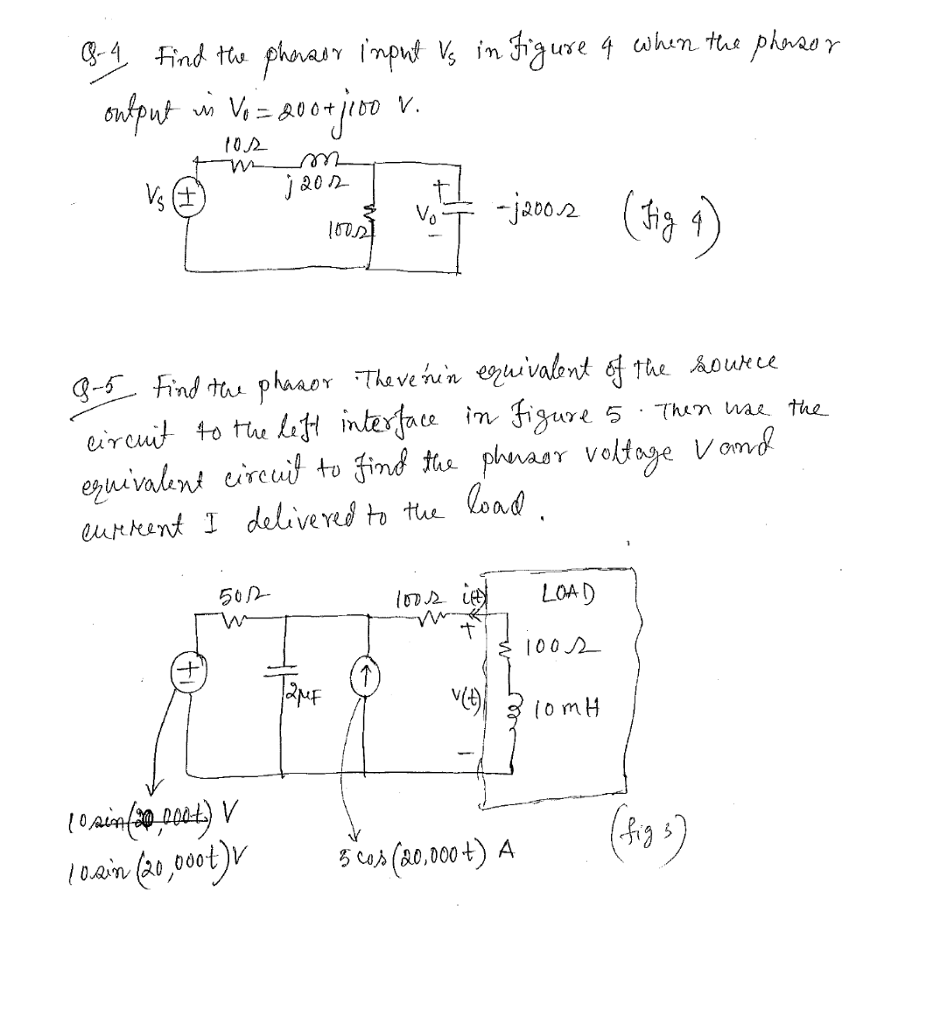 Q-4 Find the phasor input Vs in Figure 4 when the phasor
output is Vo = 200+j100 V.
10Ω
j20Ω
Vs
+
-
100Ω
+
Vo
-
-j200Ω
(Fig 4)
Q-5 Find the phasor Thevenin equivalent of the source
circuit to the left interface in Figure 5. Then use the
equivalent circuit to find the phasor voltage V and
current I delivered to the load.
50Ω
100Ω
i(t)
LOAD
+
100Ω
+
-
2μF
v(t)
10mH
-
10 sin(20,000t) V
10 sin (20,000t)V
5 cos(20,000t) A
(fig 5)